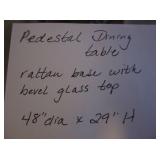 Pedestal Dining
table
rattan base with
bevel glass top
48" dia x 29" H